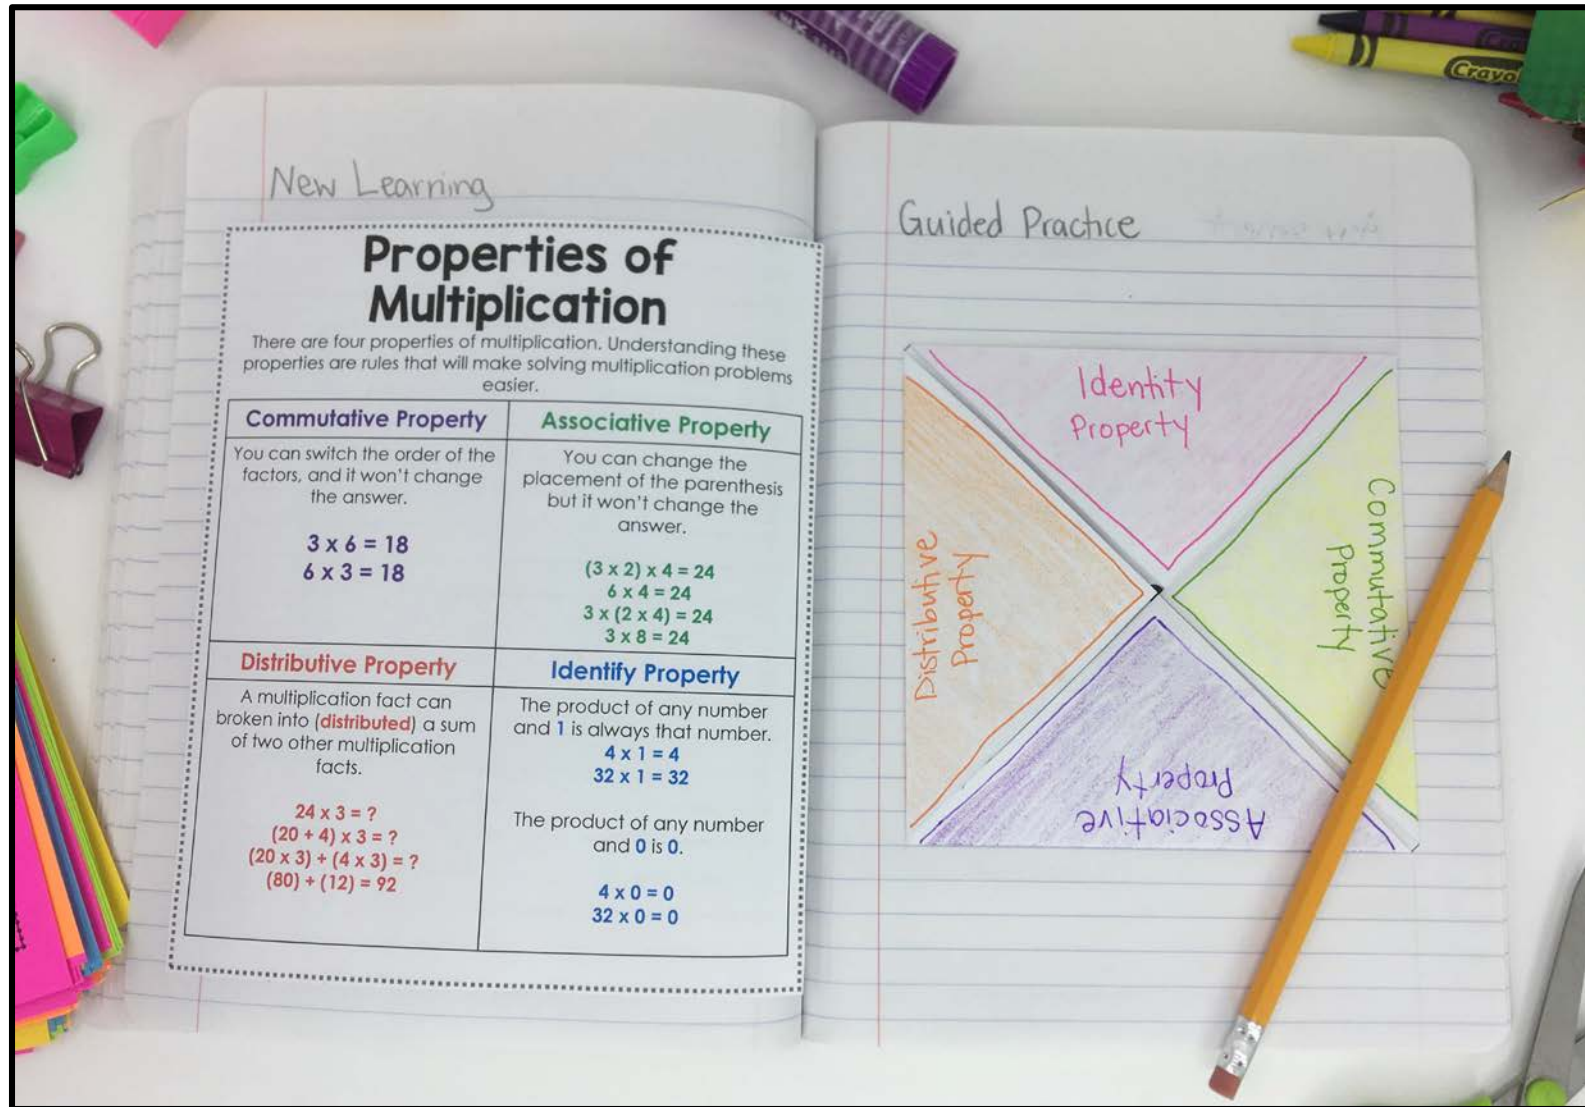 New Learning
Properties of
Multiplication
There are four properties of multiplication. Understanding these
properties are rules that will make solving multiplication problems
easier.
Commutative Property
You can switch the order of the
factors, and it won't change
the answer.
3 x 6 = 18
6 x 3 = 18
Associative Property
You can change the
placement of the parenthesis
but it won't change the
answer.
(3 x 2) x 4 = 24
6 x 4 = 24
3 x (2 x 4) = 24
3 x 8 = 24
Distributive Property
A multiplication fact can
broken into (distributed) a sum
of two other multiplication
facts.
24 x 3 = ?
(20 + 4) x 3 = ?
(20 x 3) + (4 x 3) = ?
(80) + (12) = 92
Identify Property
The product of any number
and 1 is always that number.
4 x 1 = 4
32 x 1 = 32
The product of any number
and 0 is 0.
4 x 0 = 0
32 x 0 = 0
Guided Practice
Identity
Property
Commutative
Property
Distributive
Property
Associative
Property